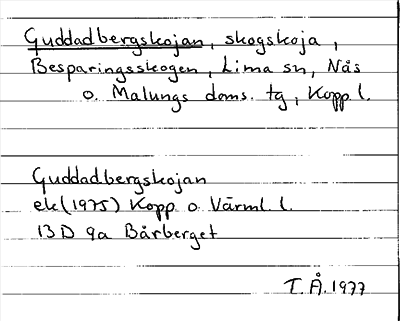 Guddadbergskojan, skogskoja,
Besparingsskogen, Lima sn, Nås
o. Malungs doms. tg, Kopp l.
Guddadbergskojan
ek (1975) Kopp o Värml. l.
13 D 9a Bårberget
T.Å. 1977